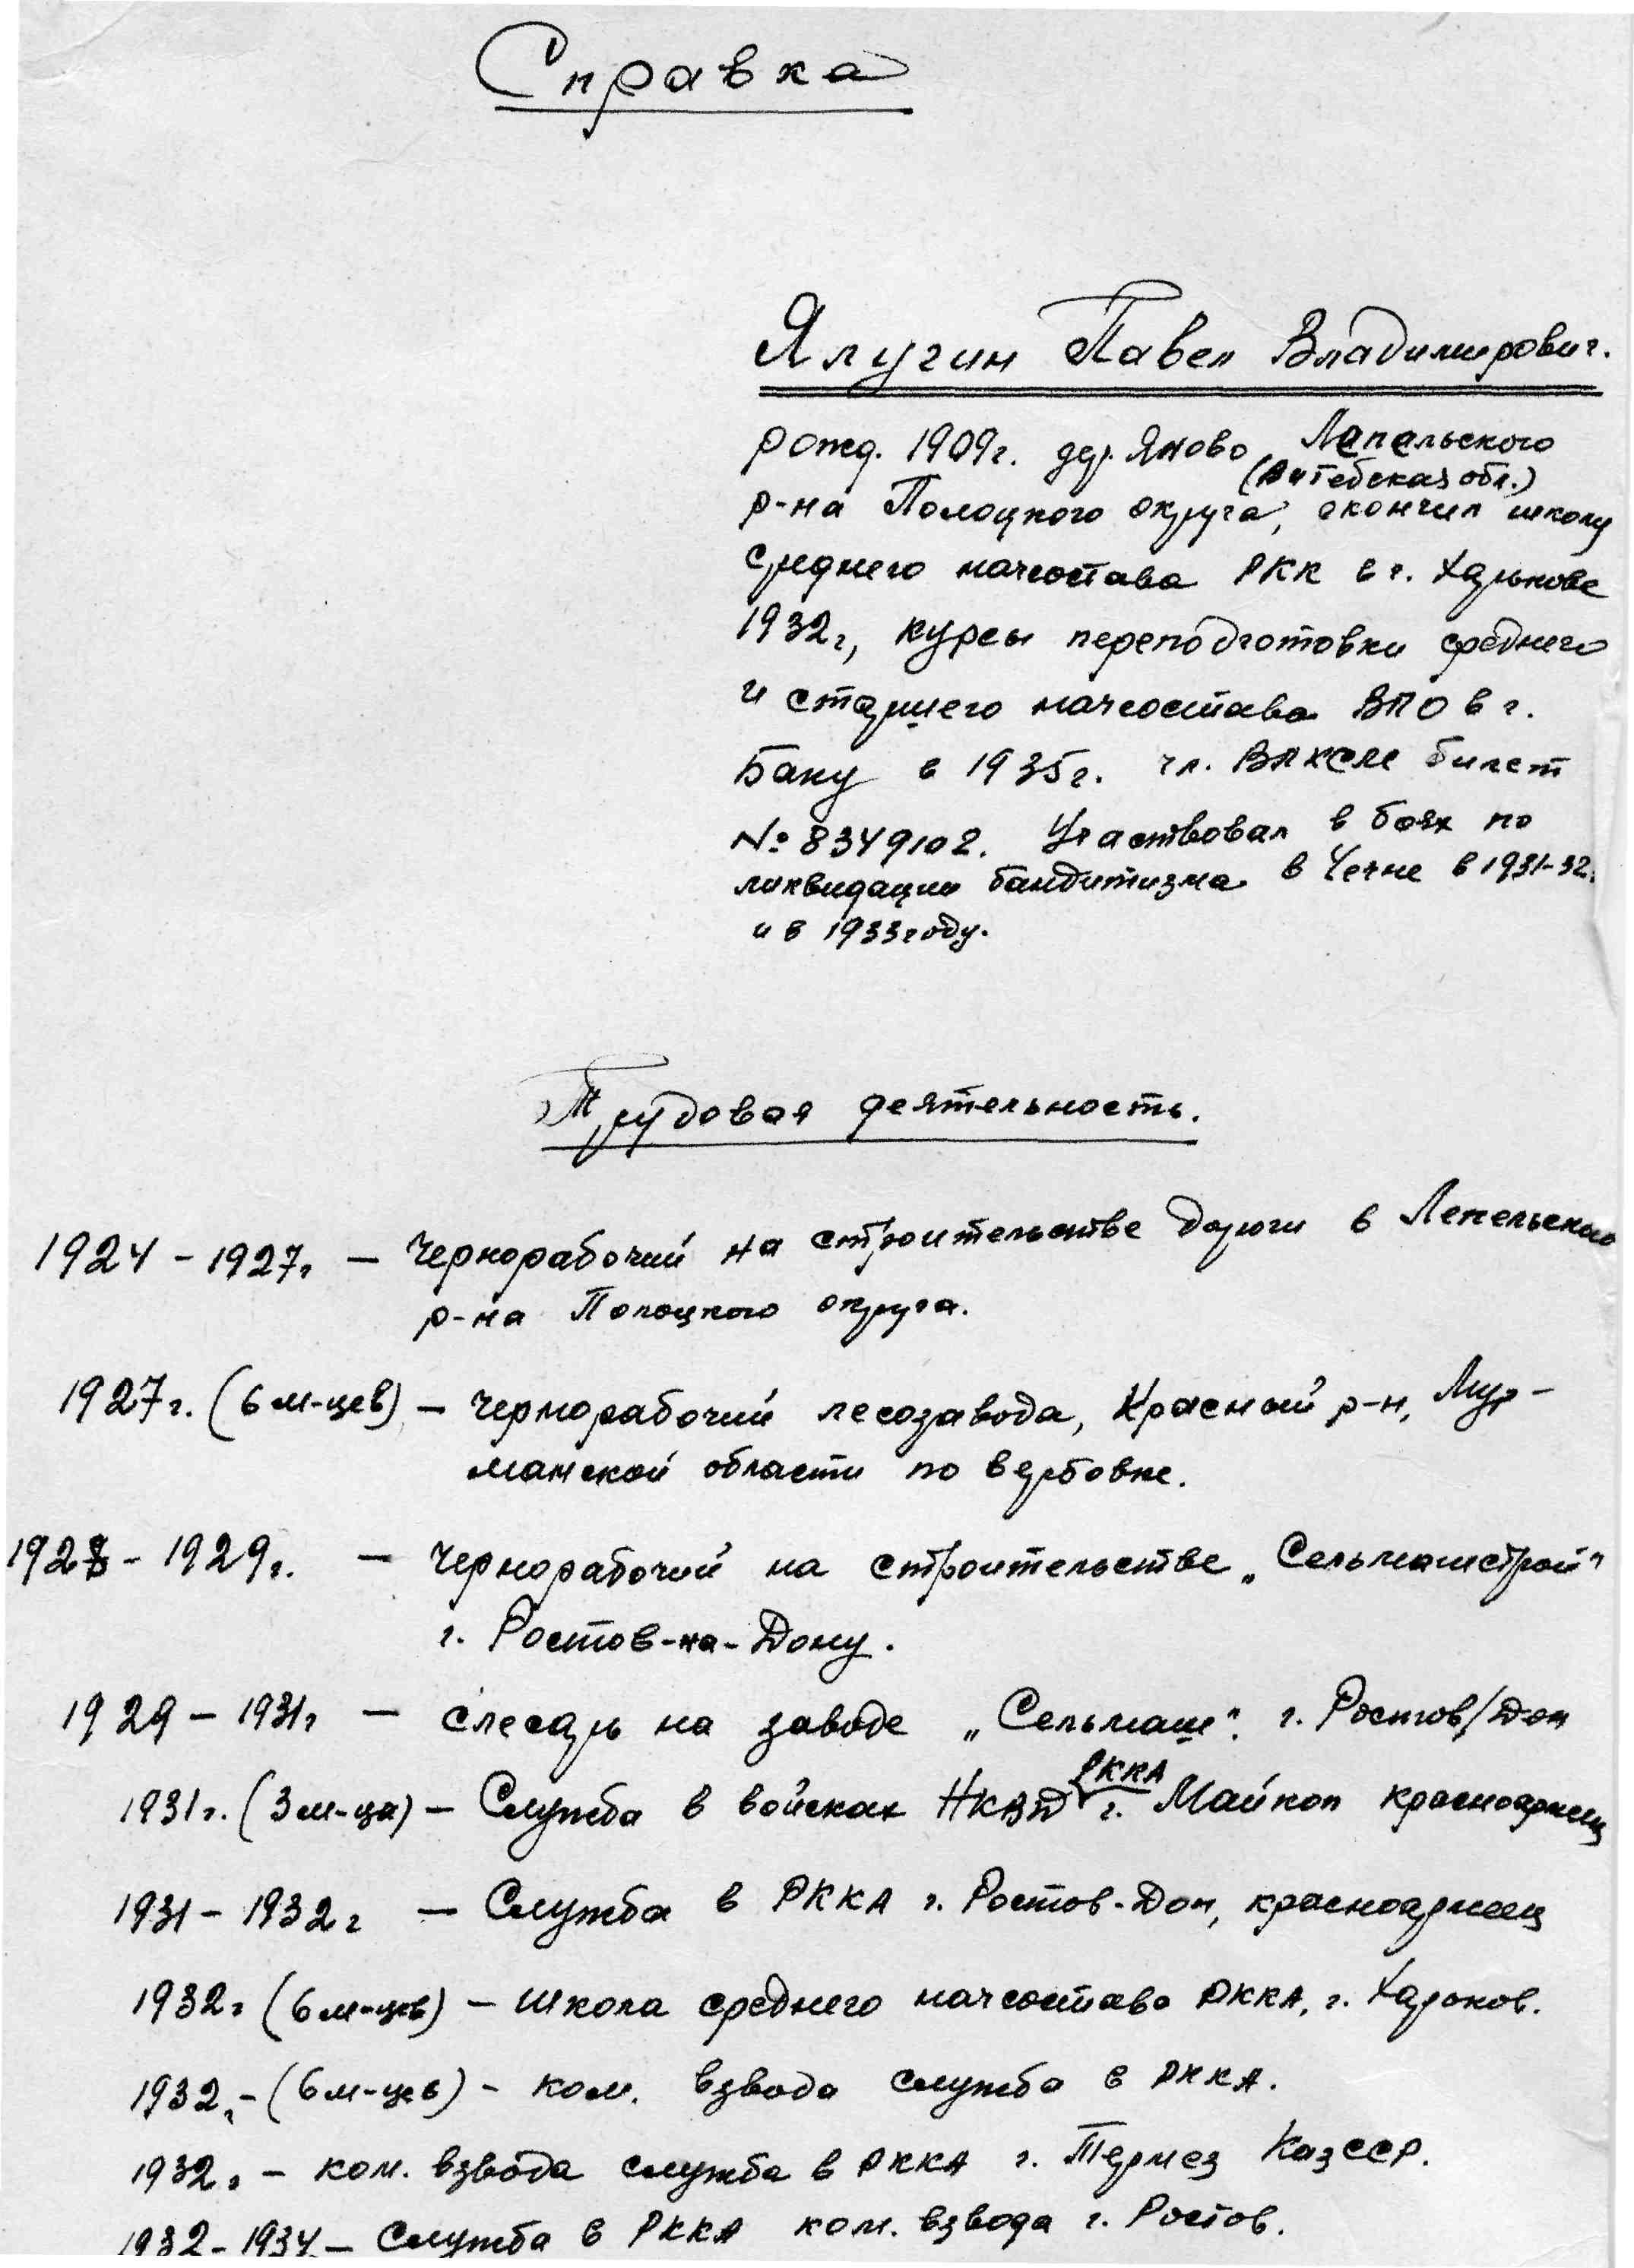 Справка
Ялугин Павел Владимирович.
рожд. 1909г. дер. Яново Лепельского
(Витебская обл.)
р-на Полоцкого округа, окончил школу
среднего начсостава РКК в г. Харькове
1932г, курсы переподготовки среднего
и старшего начсостава ВПО в г.
Баку в 1935г. чл. ВЛКСМ билет
№ 8349102. Участвовал в боях по
ликвидации бандитизма в Чечне в 1931-32.
и в 1933 году.
Трудовая деятельность.
1924 - 1927г. — Чернорабочий на строительстве дороги в Лепельского
р-на Полоцкого округа.
1927г. (6 м-цев) — чернорабочий лесозавода, Красный р-н, Мур-
манской области по вербовке.
1928 - 1929г. — чернорабочий на строительстве „Сельмашстрой"
г. Ростов-на-Дону.
1929 - 1931г — слесарь на заводе „Сельмаш". г. Ростов/Дон
РККА
1931г. (3 м-ца) — Служба в войсках НКВД г. Майкоп красноармеец
1931 - 1932г — Служба в РККА г. Ростов-Дон, красноармеец
1932г (6 м-цев) — школа среднего начсостава РККА, г. Харьков.
1932г - (6 м-цев) - ком. взвода служба в РККА.
1932г - ком. взвода служба в РККА г. Термез КазССР.
1932 - 1934 — Служба в РККА ком. взвода г. Ростов.